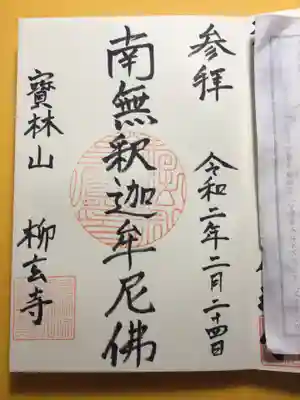 参拜
令和二年二月二十四日
南無釈迦牟尼佛
寳林山 柳玄寺